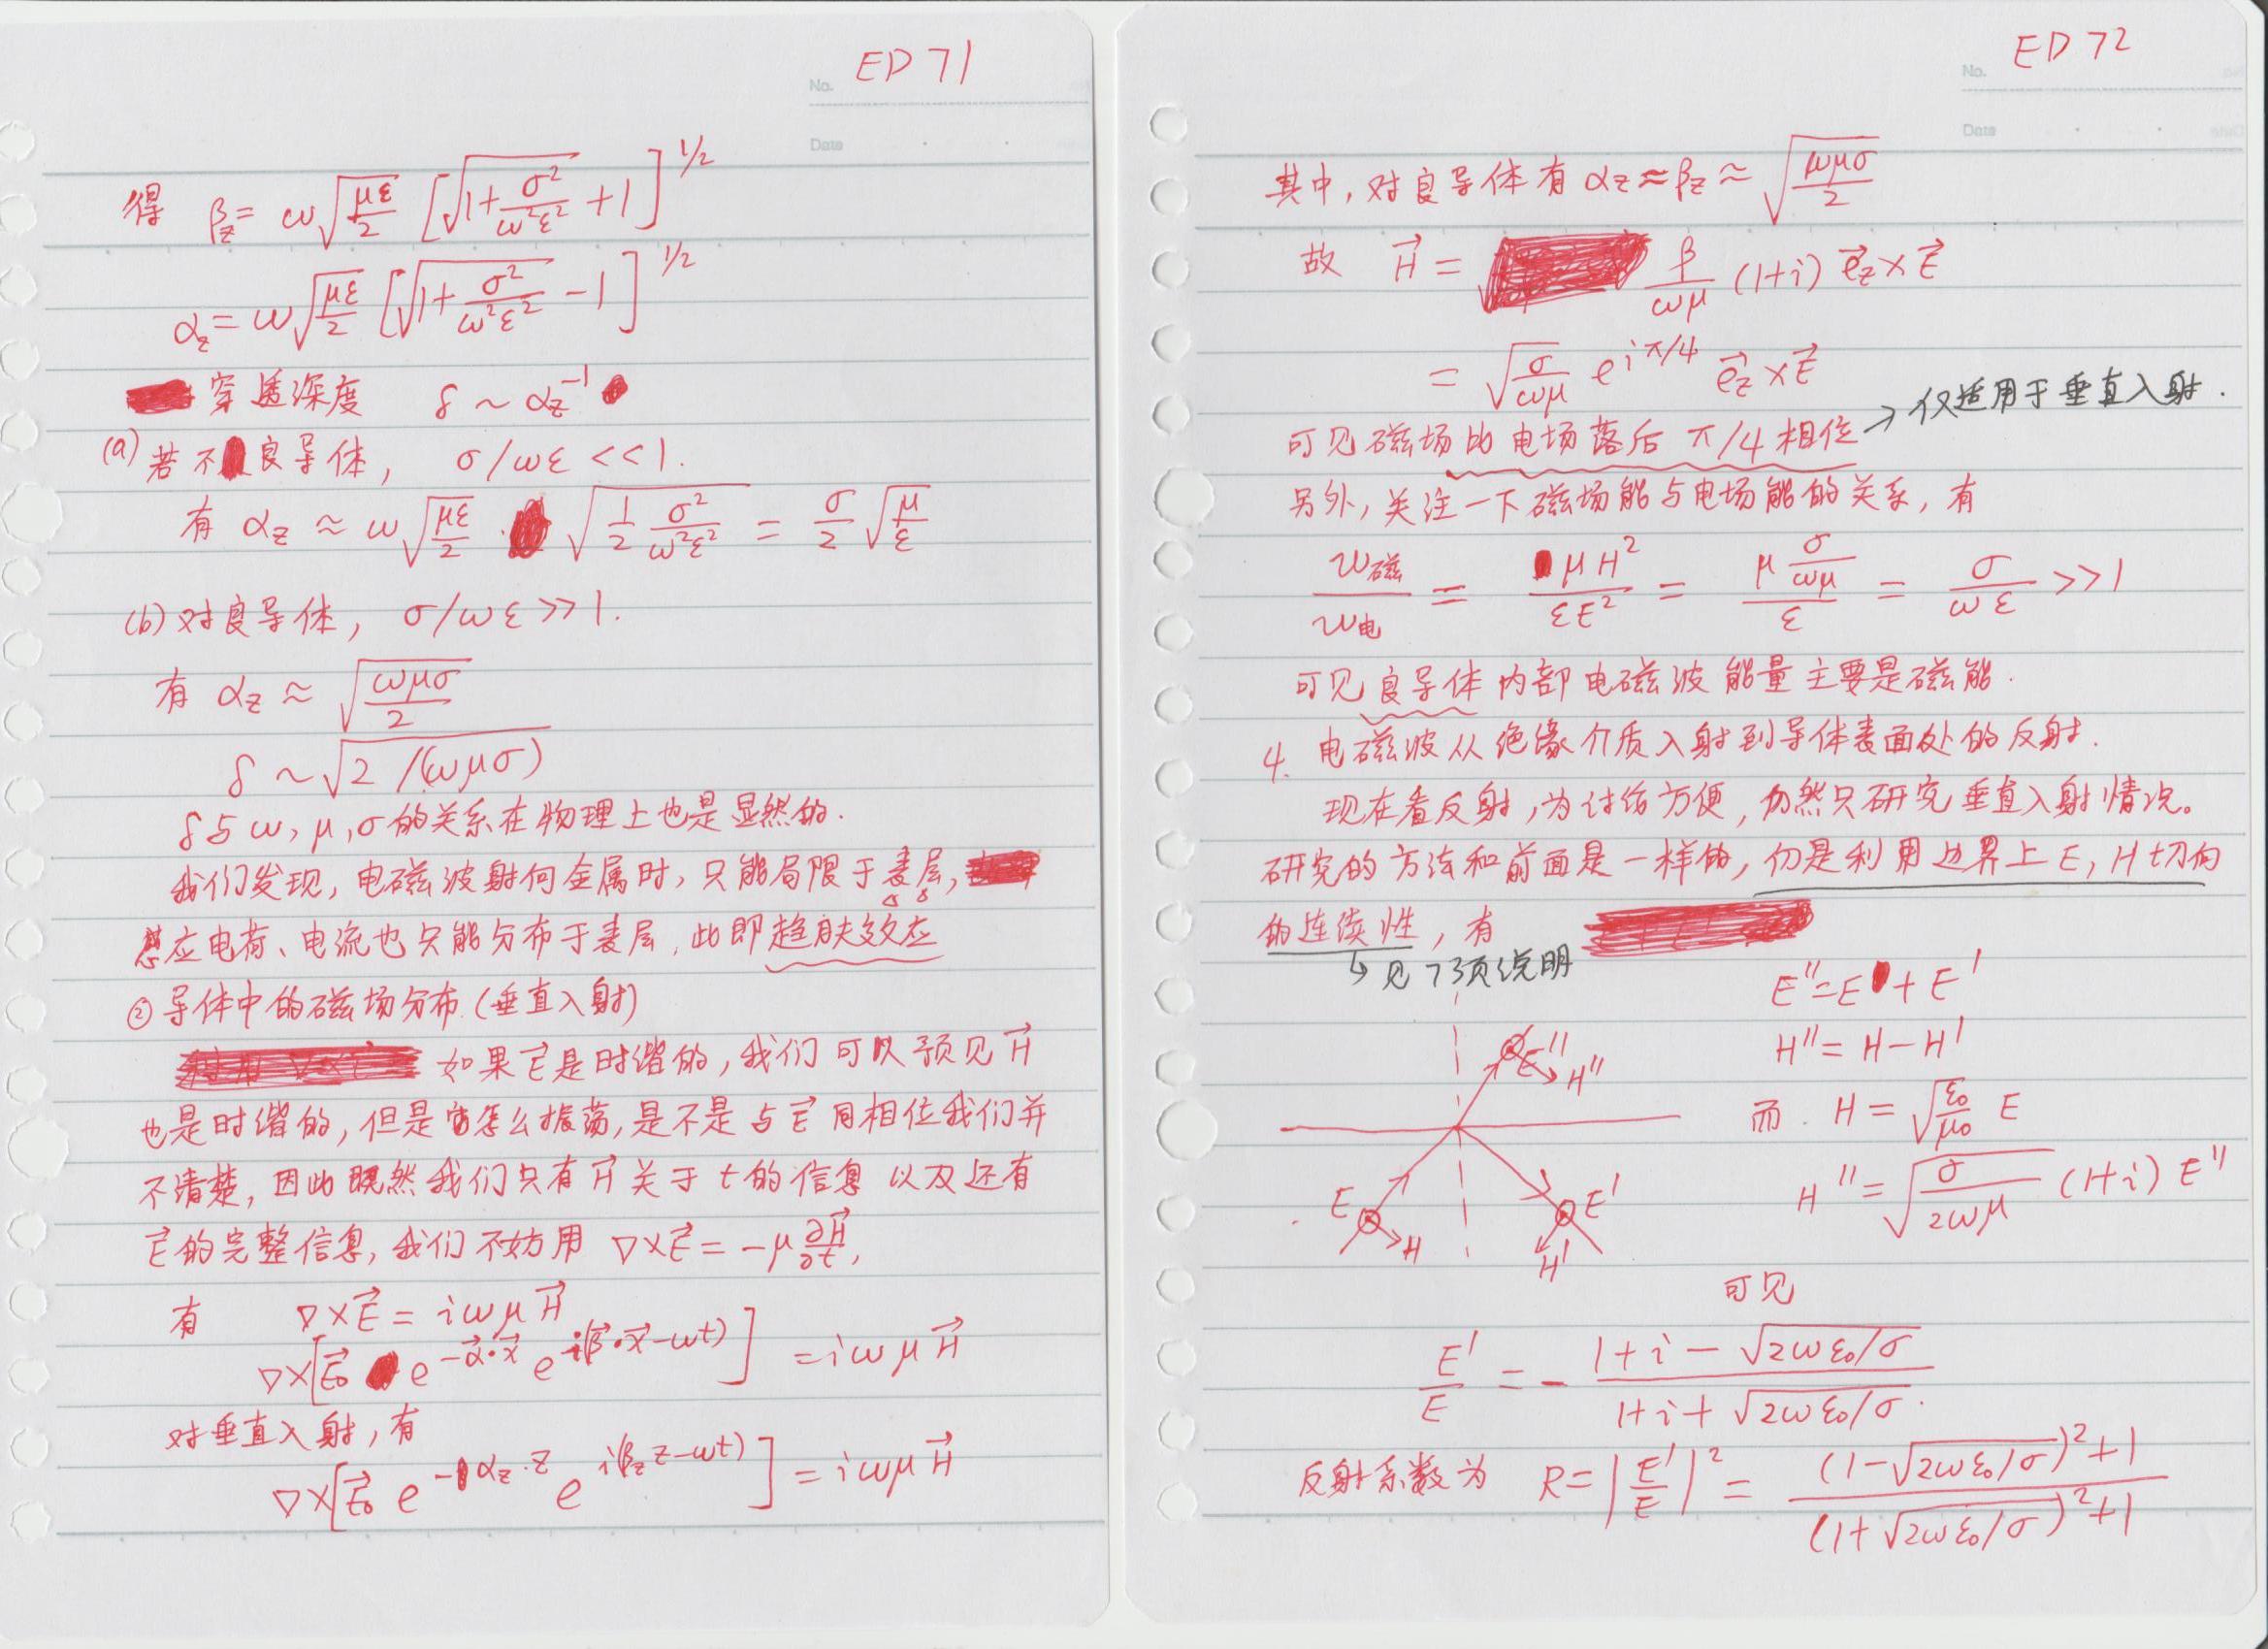 ED 71
No.
Date
得 β_z = ω√(με/2) [√(1+σ²/ω²ε²) +1]^{1/2}
α_z = ω√(με/2) [√(1+σ²/ω²ε²) -1]^{1/2}
穿透深度 δ ~ α_z^{-1}
(a) 若不良导体, σ/ωε <<1.
有 α_z ≈ ω√(με/2) · √(1/2 σ²/ω²ε²) = σ/2 √(μ/ε)
(b) 对良导体, σ/ωε >>1.
有 α_z ≈ √(ωμσ/2)
δ ~ √(2/(ωμσ))
δ与ω, μ, σ的关系在物理上也是显然的.
我们发现, 电磁波射向金属时, 只能局限于表层,
感应电荷、电流也只能分布于表层, 此即趋肤效应
② 导体中的磁场分布.(垂直入射)
如果E⃗是时谐的, 我们可以预见H⃗
也是时谐的, 但是它怎么振荡, 是不是与E⃗同相位我们并
不清楚, 因此既然我们只有H⃗关于t的信息以及还有
E⃗的完整信息, 我们不妨用 ∇×E⃗ = -μ ∂H⃗/∂t,
有 ∇×E⃗ = iωμH⃗
∇×[E⃗₀ e^{-α⃗·x⃗} e^{i(β⃗·x⃗-ωt)}] = iωμH⃗
对垂直入射, 有
∇×[E⃗₀ e^{-α_z·z} e^{i(β_z z-ωt)}] = iωμH⃗
ED 72
No.
Date
其中, 对良导体有 α_z ≈ β_z ≈ √(ωμσ/2)
故 H⃗ = β/ωμ (1+i) e⃗_z×E⃗
= √(σ/ωμ) e^{iπ/4} e⃗_z×E⃗
可见磁场比电场落后π/4相位 → 仅适用于垂直入射.
另外, 关注一下磁场能与电场能的关系, 有
w磁/w电 = μH²/εE² = μ(σ/ωμ)/ε = σ/ωε >>1
可见良导体内部电磁波能量主要是磁能.
4. 电磁波从绝缘介质入射到导体表面处的反射.
现在看反射, 为讨论方便, 仍然只研究垂直入射情况。
研究的方法和前面是一样的, 仍是利用边界上E, H切向
的连续性, 有
↳ 见73页说明
E''=E+E'
H''=H-H'
而. H = √(ε₀/μ₀) E
H'' = √(σ/2ωμ) (1+i) E''
E'' H''
E H E' H'
可见
E'/E = - (1+i-√(2ωε₀/σ))/(1+i+√(2ωε₀/σ)).
反射系数为 R=|E'/E|² = ((1-√(2ωε₀/σ))²+1)/((1+√(2ωε₀/σ))²+1)